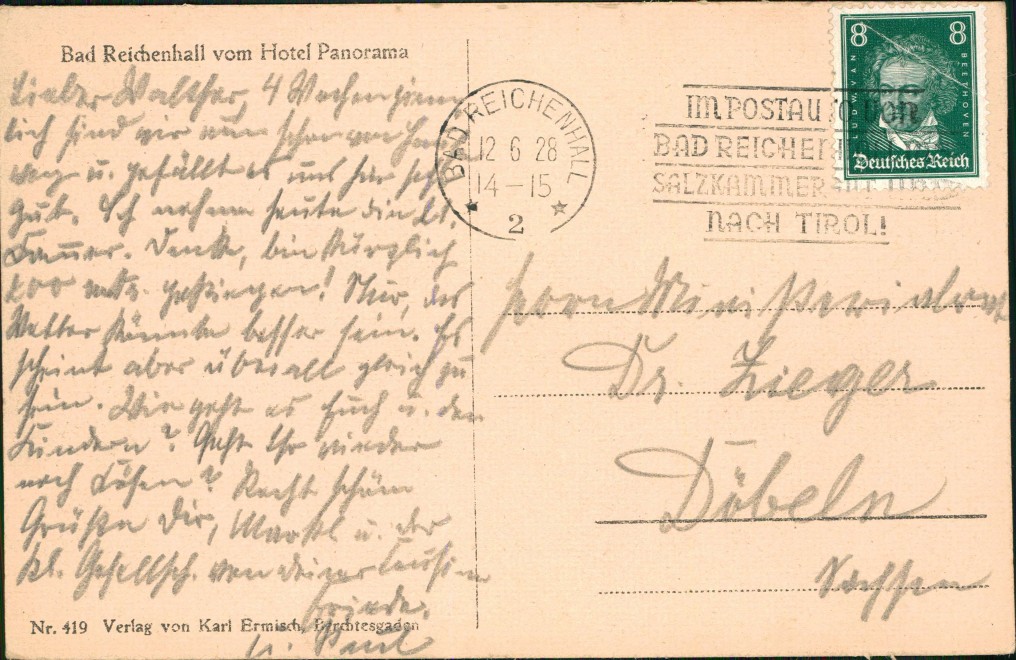 Bad Reichenhall vom Hotel Panorama
Lieber Walther, 4 Wochen ziem
lich sind wir nun schon von Hause
weg u. gefällt es uns hier sehr
gut. Ich nehme heute die
Denke, bin kürzlich
gestiegen! Nur, das
Wetter könnte besser sein. Es
scheint aber überall gleich zu
sein. Wie geht es Euch u. den
Kindern? Geht Ihr wieder
nach Kösen? Recht schöne
Grüße Dir, u. der
kl. Gesellsch. von Deiner Cousine
Frieda.
u. Paul
Nr. 419 Verlag von Karl Ermisch, Berchtesgaden
BAD REICHENHALL
12 6 28
14-15
2
IM POSTAUTO VON
BAD REICHENHALL
SALZKAMMERGUT
NACH TIROL!
8 8
LUDW. VAN BEETHOVEN
Deutsches Reich
Herrn Ministerialrat
Dr. Zieger
Döbeln
Sachsen